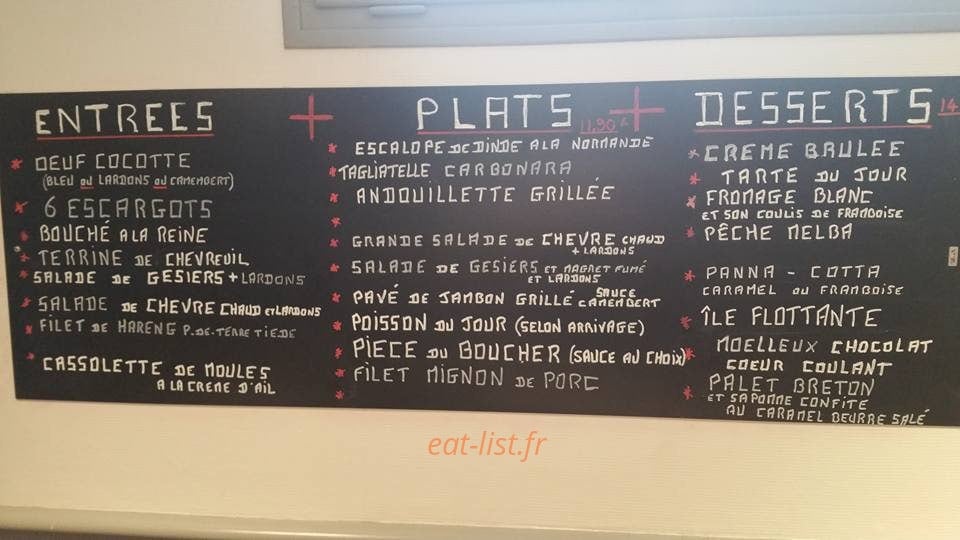 ENTREES
OEUF COCOTTE
(BLEU ou LARDONS ou CAMEMBERT)
6 ESCARGOTS
BOUCHÉ A LA REINE
TERRINE DE CHEVREUIL
SALADE DE GESIERS + LARDONS
SALADE DE CHEVRE CHAUD ET LARDONS
FILET DE HARENG P.DE.TERRE TIEDE
CASSOLETTE DE MOULES
A LA CREME D'AIL
+
PLATS
11,90 €
ESCALOPE DE DINDE A LA NORMANDE
TAGLIATELLE CARBONARA
ANDOUILLETTE GRILLÉE
GRANDE SALADE DE CHEVRE CHAUD
+ LARDONS
SALADE DE GESIERS ET MAGRET FUMÉ
ET LARDONS
PAVÉ DE JAMBON GRILLÉ SAUCE
CAMEMBERT
POISSON DU JOUR (SELON ARRIVAGE)
PIECE DU BOUCHER (SAUCE AU CHOIX)
FILET MIGNON DE PORC
+
DESSERTS
14
CREME BRULEE
TARTE DU JOUR
FROMAGE BLANC
ET SON COULIS DE FRAMBOISE
PÊCHE MELBA
PANNA - COTTA
CARAMEL OU FRAMBOISE
ÎLE FLOTTANTE
MOELLEUX CHOCOLAT
COEUR COULANT
PALET BRETON
ET SA POMME CONFITE
AU CARAMEL BEURRE SALÉ
eat-list.fr